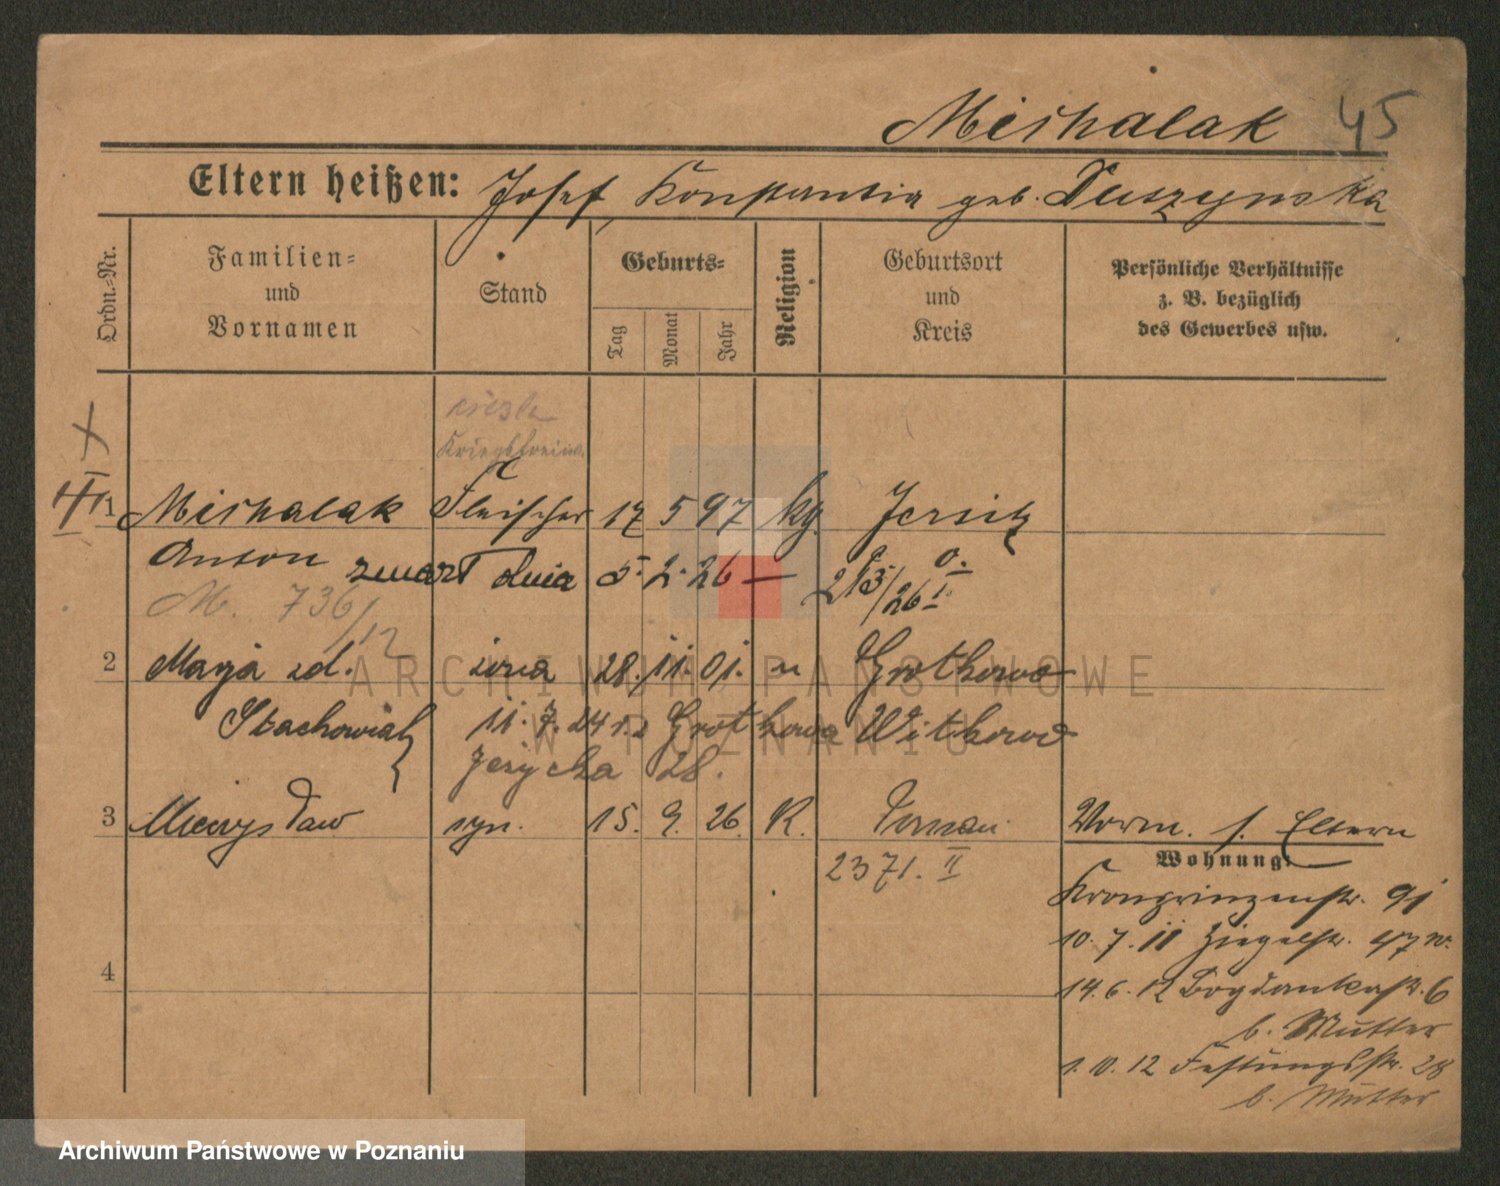 Michalak 45
Eltern heißen: Josef, Konstantia geb. Duszynska
Ordn.-Nr.
Familien-
und
Vornamen
Stand
Geburts-
Tag
Monat
Jahr
Religion
Geburtsort
und
Kreis
Persönliche Verhältnisse
z. B. bezüglich
des Gewerbes usw.
1 Michalak Fleischer 17 5 97 kg. Jersitz
Anton zmarł dnia 5. 2. 26 — 213/26 I
M. 736/12
2 Marja zd. żona 28. 11. 01. " Grotkowo
Stachowiak 11. 7. 24 Grotkowa Witkowo
Jeżycka 28.
3 Mieczysław syn. 15. 9. 26. K. Poznań Vorm. s. Eltern
2371. II
Wohnung:
Kronprinzenstr. 91
10. 7. 11 Ziegelstr. 47
14. 6. 12 Bogdankastr. 6
b. Mutter
1. 10. 12 Festungsstr. 28
b. Mutter
4
ARCHIWUM PAŃSTWOWE
W POZNANIU
Archiwum Państwowe w Poznaniu